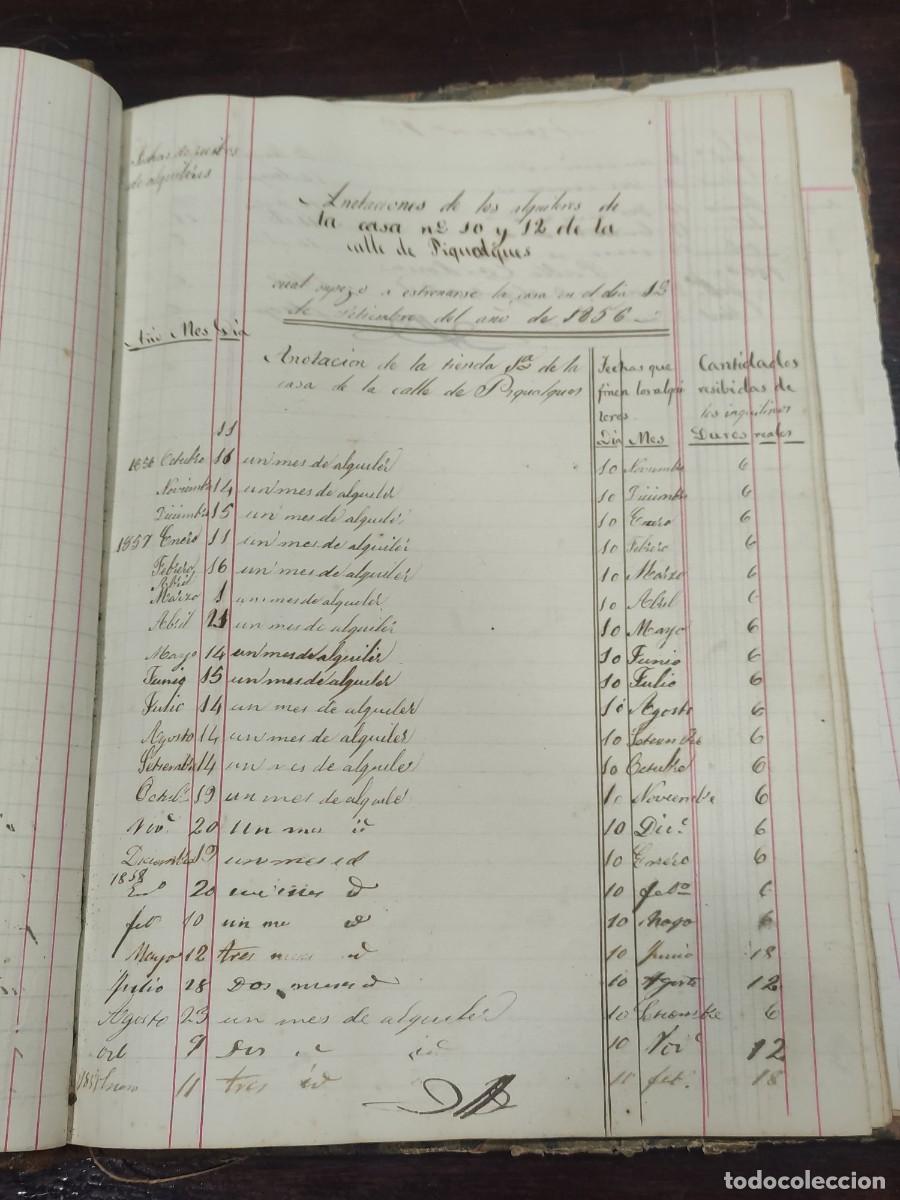 de alquileres
Anotaciones de los alquileres de
la casa nº 10 y 12 de la
calle de Piqualques
cual enpezo a estrenarse la casa en el dia 12
de Setiembre del año de 1856
Año Mes Dia
Anotacion de la tienda 1ra de la
casa de la calle de Piqualques
Fechas que
finen los alqui
leres
Dia Mes
Cantidades
resibidas de
los inquilinos
Duros reales
11
1856 Octubre 16 un mes de alquiler 10 Noviembre 6
Noviembre 14 un mes de alquiler 10 Diciembre 6
Diciembre 15 un mes de alquiler 10 Enero 6
1857 Enero 11 un mes de alquiler 10 Febrero 6
Febrero 16 un mes de alquiler 10 Marzo 6
Abril
Marzo 1 un mes de alquiler 10 Abril 6
Abril 21 un mes de alquiler 10 Mayo 6
Mayo 14 un mes de alquiler 10 Junio 6
Junio 15 un mes de alquiler 10 Julio 6
Julio 14 un mes de alquiler 10 Agosto 6
Agosto 14 un mes de alquiler 10 Setiembre 6
Setiembre 14 un mes de alquiler 10 Octubre 6
Octubre 19 un mes de alquiler 10 Noviembre 6
Nove 20 un mes id 10 Dice 6
Diciembre 19 un mes id 10 Enero 6
1858
Eno 20 un mes id 10 febo 6
feb 10 un mes id 10 6
Mayo 12 tres meses id 10 Junio 18
Julio 28 Dos meses id 10 Agosto 12
Agosto 23 un mes de alquiler 10 Setiembre 6
oct 9 Dos id id 10 Nove 12
1859 Enero 11 tres id 10 feb 18
todocoleccion